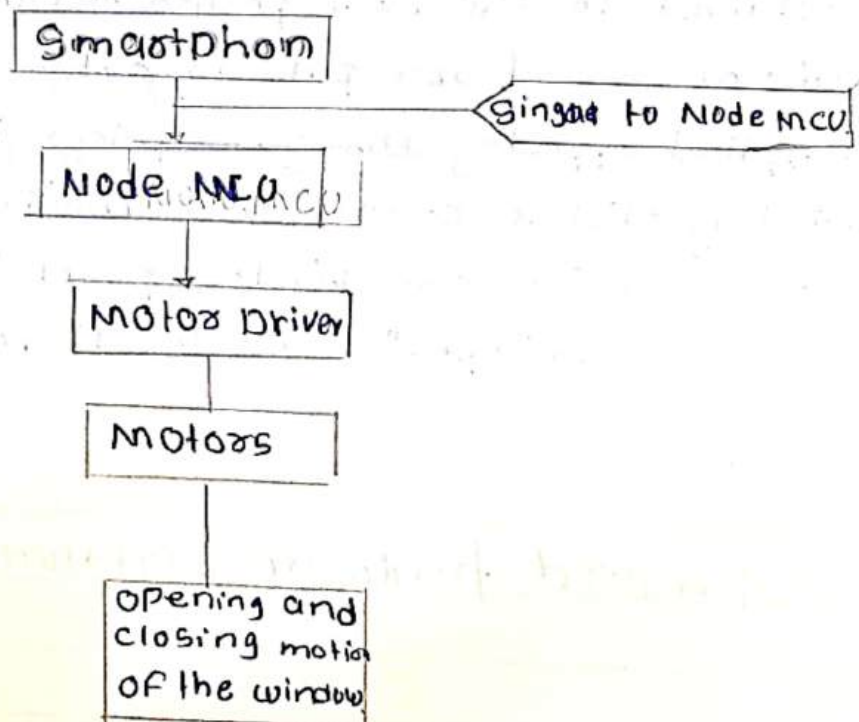 Smartphon
Singal to Node MCU
Node MCU
Motor Driver
Motors
opening and
closing motion
of the window